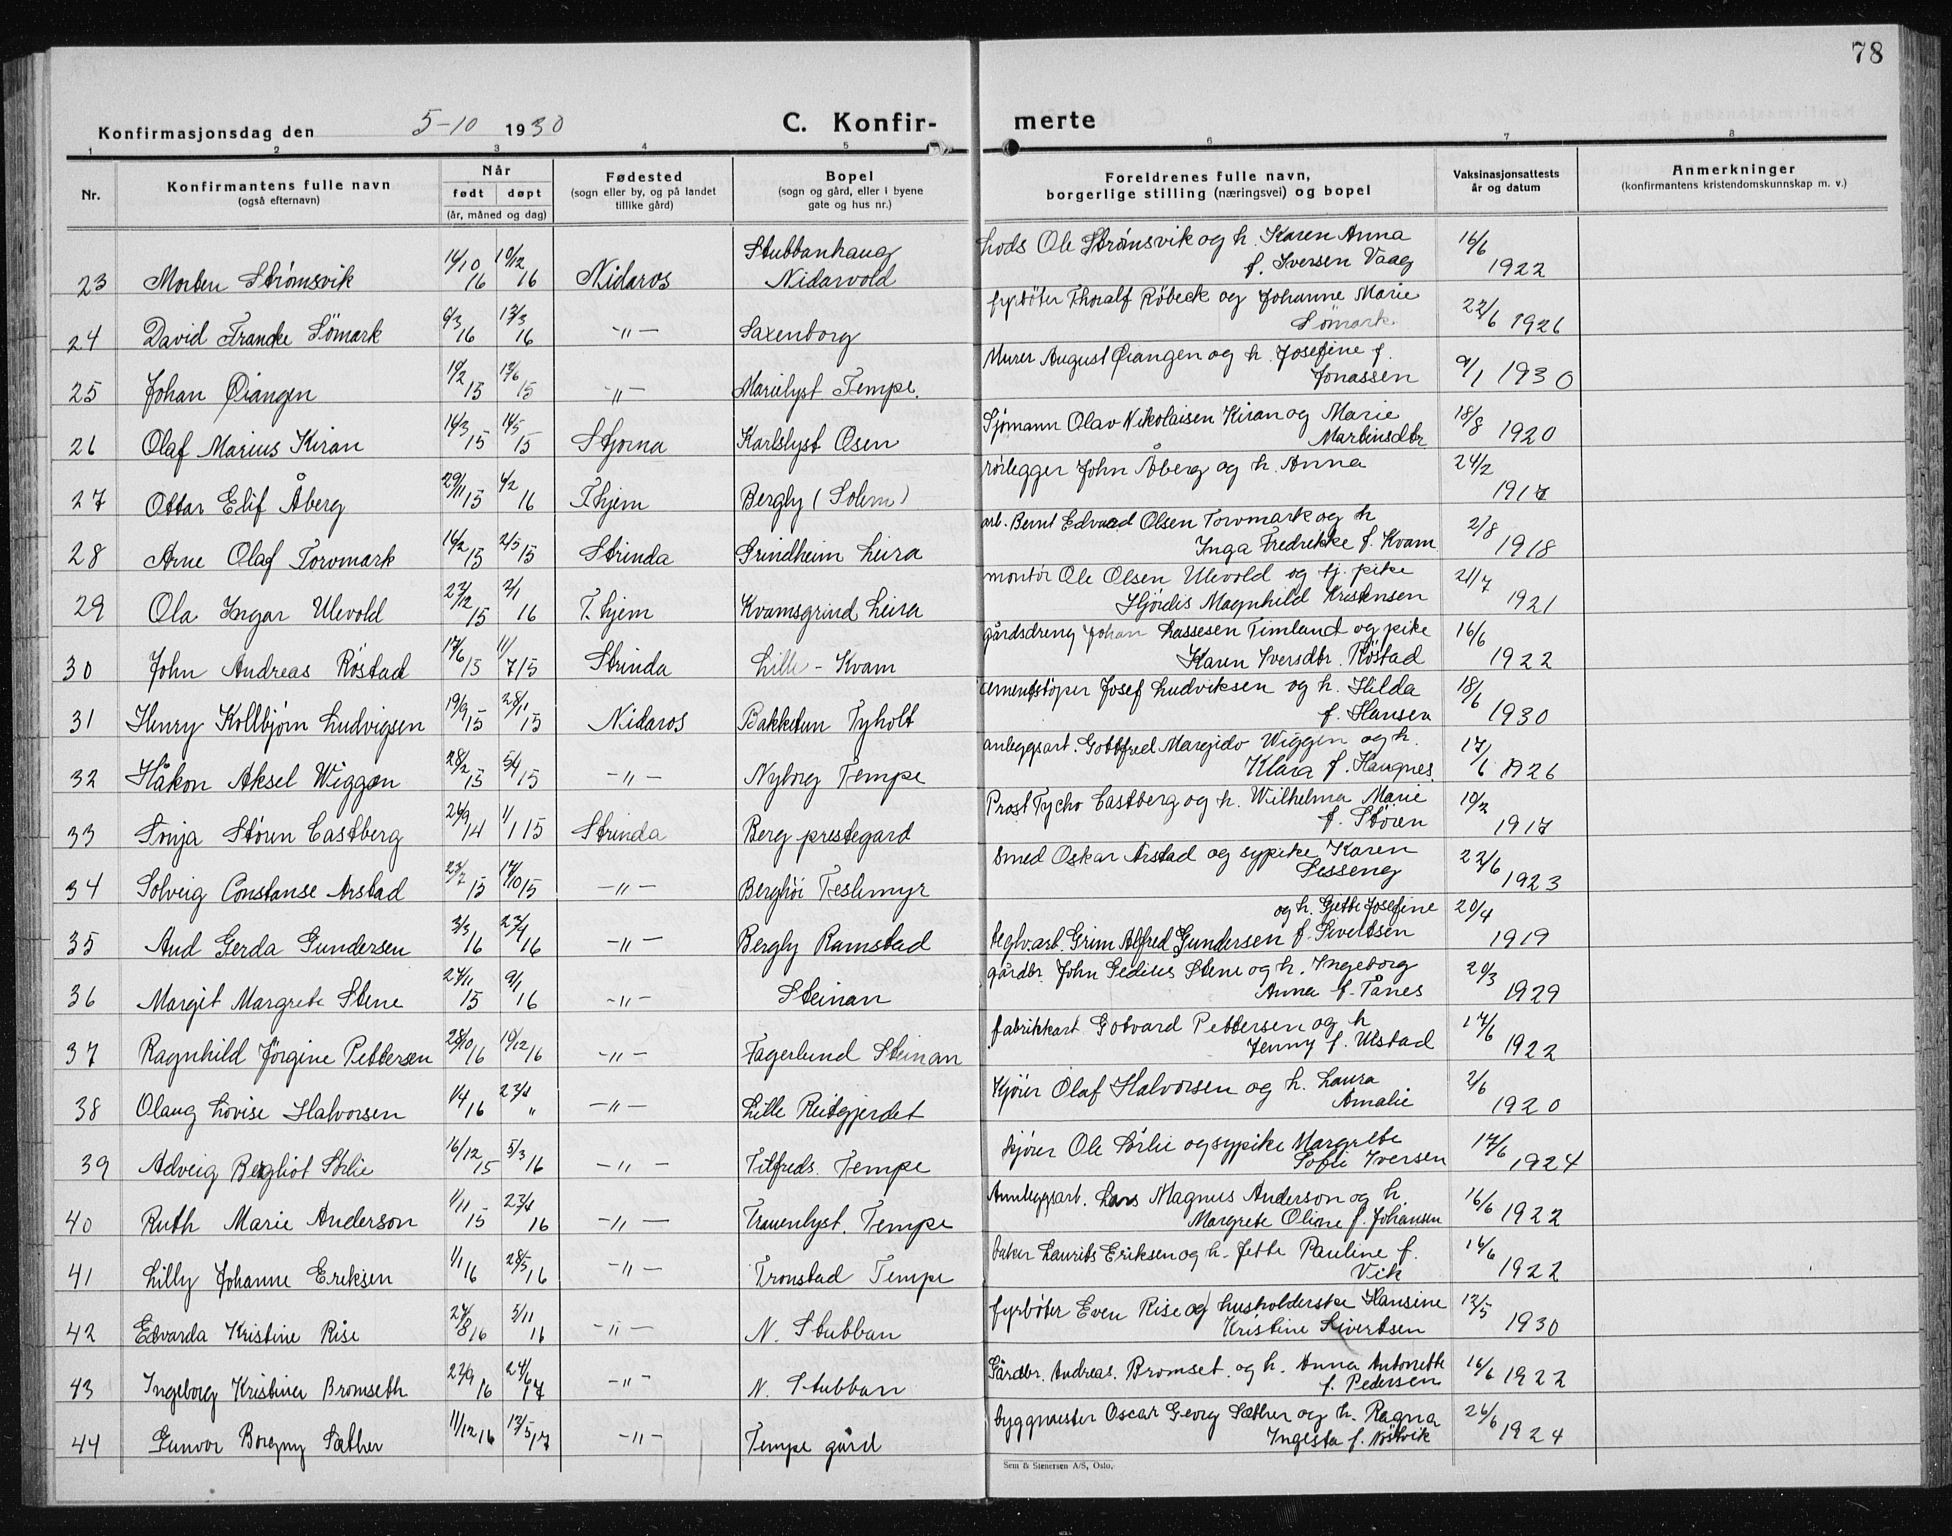 78
Konfirmasjonsdag den 5-10 1930
C. Konfir-
merte
1 2 3 4 5 6 7 8
Nr.
Konfirmantens fulle navn
(også efternavn)
Når
født døpt
(år, måned og dag)
Fødested
(sogn eller by, og på landet
tillike gård)
Bopel
(sogn og gård, eller i byene
gate og hus nr.)
Foreldrenes fulle navn,
borgerlige stilling (næringsvei) og bopel
Vaksinasjonsattests
år og datum
Anmerkninger
(konfirmantens kristendomskunnskap m. v.)
23 Morten Strømsvik 16 16 Nidaros Stubbanhaug Nidarvold Ole Strømsvik og h. Karen Anna
f. Iversen Vaag 16/6 1922
24 David Francke Sömark 16 16 -"- Saxenborg fyrbøter Thoralf Röbeck og Johanne Marie
Sömark 22/6 1926
25 Johan Øiangen 15 15 -"- Marielyst Tempe. Murer August Øiangen og h. Josefine f.
Jonassen 9/1 1930
26 Olaf Marius Kiran 15 15 Stjørna Karlslyst Osen Sjømann Olav Nikolaisen Kiran og Marie
Martinsdtr 18/8 1920
27 Ottar Elif Åberg 29/11 15 4/2 16 T.hjem Bergly (Solem) rørlegger John Åberg og h. Anna
24/2 1917
28 Arne Olaf Torvmark 16/2 15 2/5 15 Strinda Grindheim Leira arb. Bernt Edvard Olsen Torvmark og h
Inga Fredrikke f. Kvam 2/8 1918
29 Ola Ingar Ulevold 15 2/1 16 T.hjem Kvamsgrind Leira montör Ole Olsen Ulevold og tj. pike
Hjørdis Magnhild Kristensen 21/7 1921
30 John Andreas Röstad 17/6 15 11/7 15 Strinda Lille-Kvam gårdsdreng Johan Lassesen Timland og pike
Karen Iversdtr. Röstad 16/6 1922
31 Henry Kolbjørn Ludvigsen 19/9 15 28/11 15 Nidaros Bakketun Tyholt cementstöper Josef Ludviksen og h. Hilda
f. Hansen 18/6 1930
32 Håkon Aksel Wiggen 28/2 15 5/4 15 -"- Nyborg Tempe anleggsarb. Gottfred Margido Wiggen og h.
Klara f. Haugnes. 17/6 1926
33 Sonja Støren Castberg 14 1/1 15 Strinda Berg prestegard Prost Tycho Castberg og h. Wilhelma Marie
f. Støren 1917
34 Solveig Constanse Arstad 15 17/10 15 -"- Berghöi Teslimyr Smed Oskar Arstad og sypike Karen
Sesseng 22/6 1923
35 Aud Gerda Gundersen 3/3 16 16 -"- Bergly Ramstad og h. Gjette Josefine
teglv.arb. Grim Alfred Gundersen f. Sivertsen 20/4 1919
36 Margit Margrete Stene 15 9/1 16 -"- Steinan gårdbr. John Gedius Stene og h. Ingeborg
Anna f. Tånes 20/3 1929
37 Ragnhild Jörgine Pettersen 28/10 16 19/12 16 -"- Fagerlund Steinan fabrikkarb Gotvard Pettersen og h
Jenny f. Ulstad 17/6 1922
38 Olaug Lovise Halvorsen 1/4 16 23/4 " -"- Lille Reitgjerdet Kjører Olaf Halvorsen og h. Laura
Amalie 2/6 1920
39 Adveig Bergliot Sörlie 16/12 15 5/3 16 -"- Tilfreds. Tempe kjører Ole Sörlie og sypike Margrete
Sofie Iversen 17/6 1924
40 Ruth Marie Anderson 1/11 15 23/4 16 -"- Fruenlyst. Tempe Annleggsarb. Lars Magnus Anderson og h.
Margrete Oline f. Johansen 16/6 1922
41 Lilly Johanne Eriksen 1/1 16 28/5 16 -"- Tronstad Tempe baker Laurits Eriksen og h. Jette Pauline f.
Vik 16/6 1922
42 Edvarda Kristine Rise 8 16 5/11 16 -"- N. Stubban fyrbøter Even Rise og husholderske Hansine
Kristine Sivertsen 12/5 1930
43 Ingeborg Kristine Bromseth 16 24/6 17 -"- N. Stubban Gårdbr. Andreas. Bromset. og h. Anna Antonette
f. Pedersen 16/6 1922
44 Gunvor Borgny Sæther 11/12 16 13/5 17 -"- Tempe gård byggmester Oscar Georg Sæther og h. Ragna
Ingesta f. Nöstvik 26/6 1924
Sem & Stenersen A/S, Oslo.